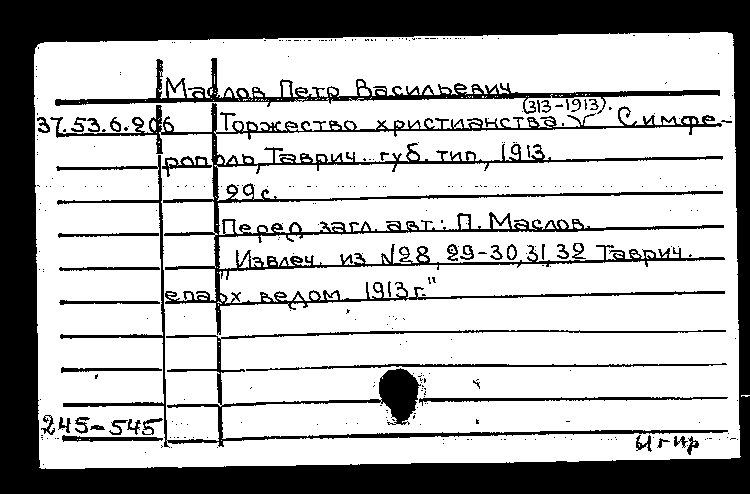 Маслов, Петр Васильевич.
37.53.6.206 Торжество христианства. (313-1913). Симфе-
рополь, Таврич. губ. тип., 1913.
29 с.
Перед загл. авт.: П. Маслов.
„Извлеч. из №28, 29-30, 31, 32 Таврич.
епарх. ведом. 1913 г."
245-545